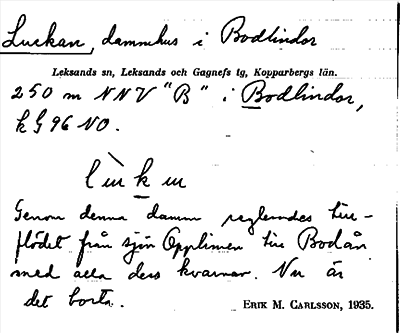 Luckan, dammhus i Bodlindor
Leksands sn, Leksands och Gagnefs tg, Kopparbergs län.
250 m NNV "B" i Bodlindor,
k G 96 NO.
Genom denna damm reglerades till-
flödet från sjön Opplimen till Bodån
med alla dess kvarnar. Nu är
det borta.
ERIK M. CARLSSON, 1935.